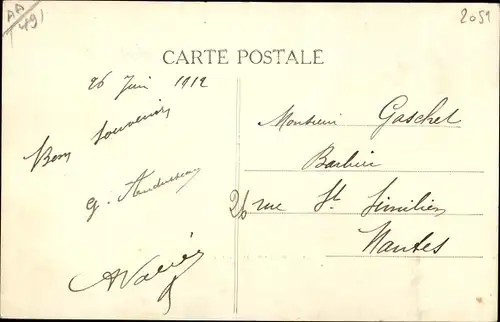 AA
491
2051
CARTE POSTALE
26 Juin 1912
Bon Souvenir
G.
Monsieur Gaschet
Barbier
26 rue St. Similien
Nantes